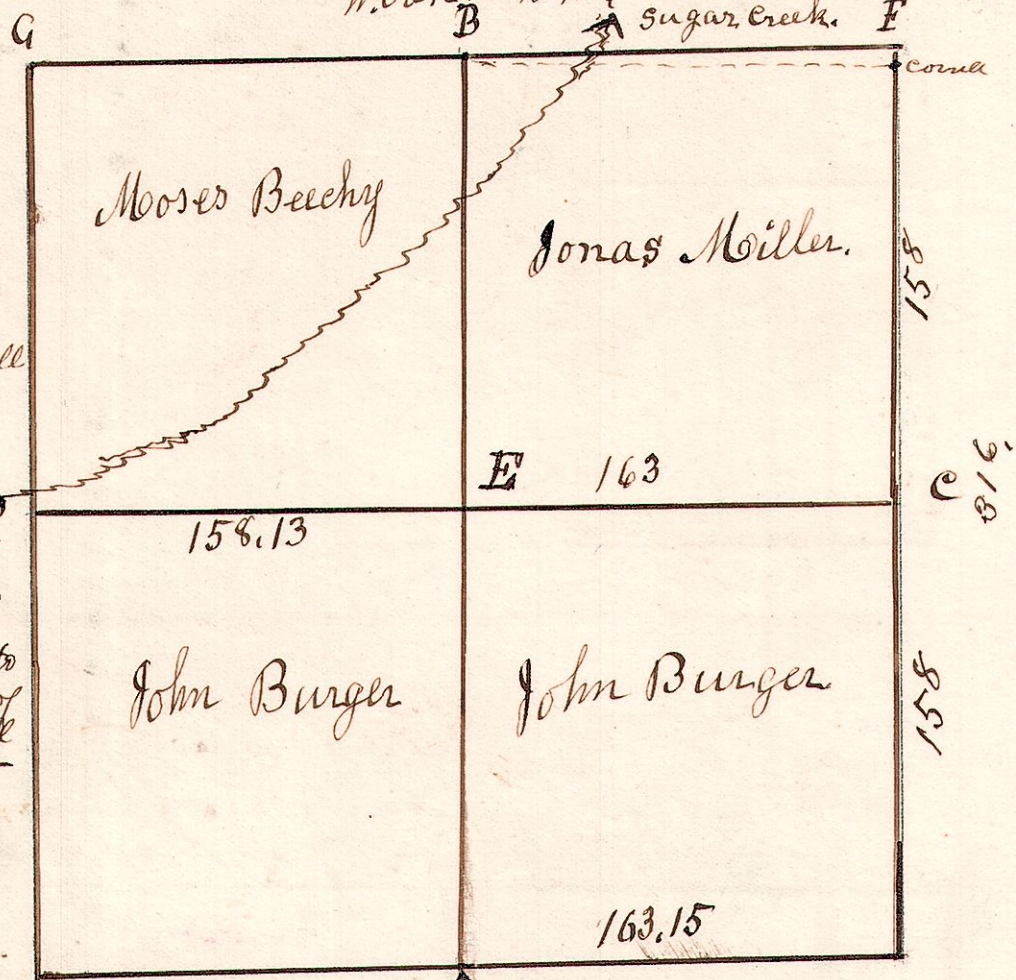 G
B
Sugar Creek.
F
Moses Beechy
Jonas Miller.
158
E
163
C
316.
158.13
John Burger
John Burger
158
163.15